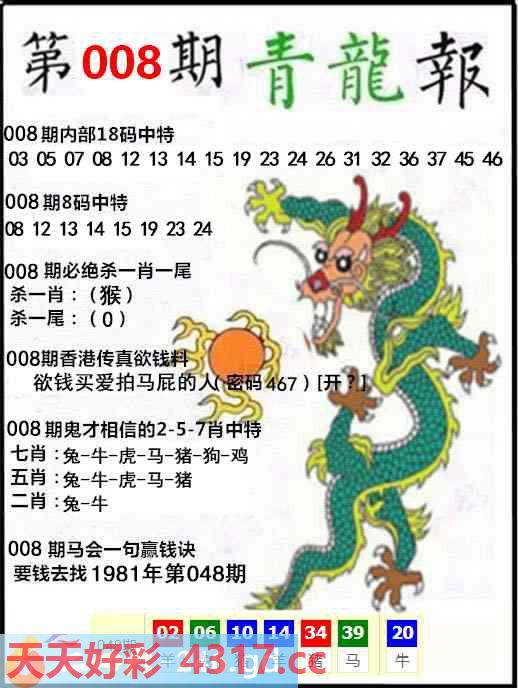 第008期 青龍報
008期内部18码中特
03 05 07 08 12 13 14 15 19 23 24 26 31 32 36 37 45 46
008期8码中特
08 12 13 14 15 19 23 24
008期必绝杀一肖一尾
杀一肖：（猴）
杀一尾：（0）
008期香港传真欲钱料
欲钱买爱拍马屁的人（密码467）[开？]
008期鬼才相信的2-5-7肖中特
七肖：兔-牛-虎-马-猪-狗-鸡
五肖：兔-牛-虎-马-猪
二肖：兔-牛
008期马会一句赢钱诀
要钱去找1981年第048期
02 06 10 14 34 39 20
048期 羊 猪 马 牛
天天好彩 4317.cc